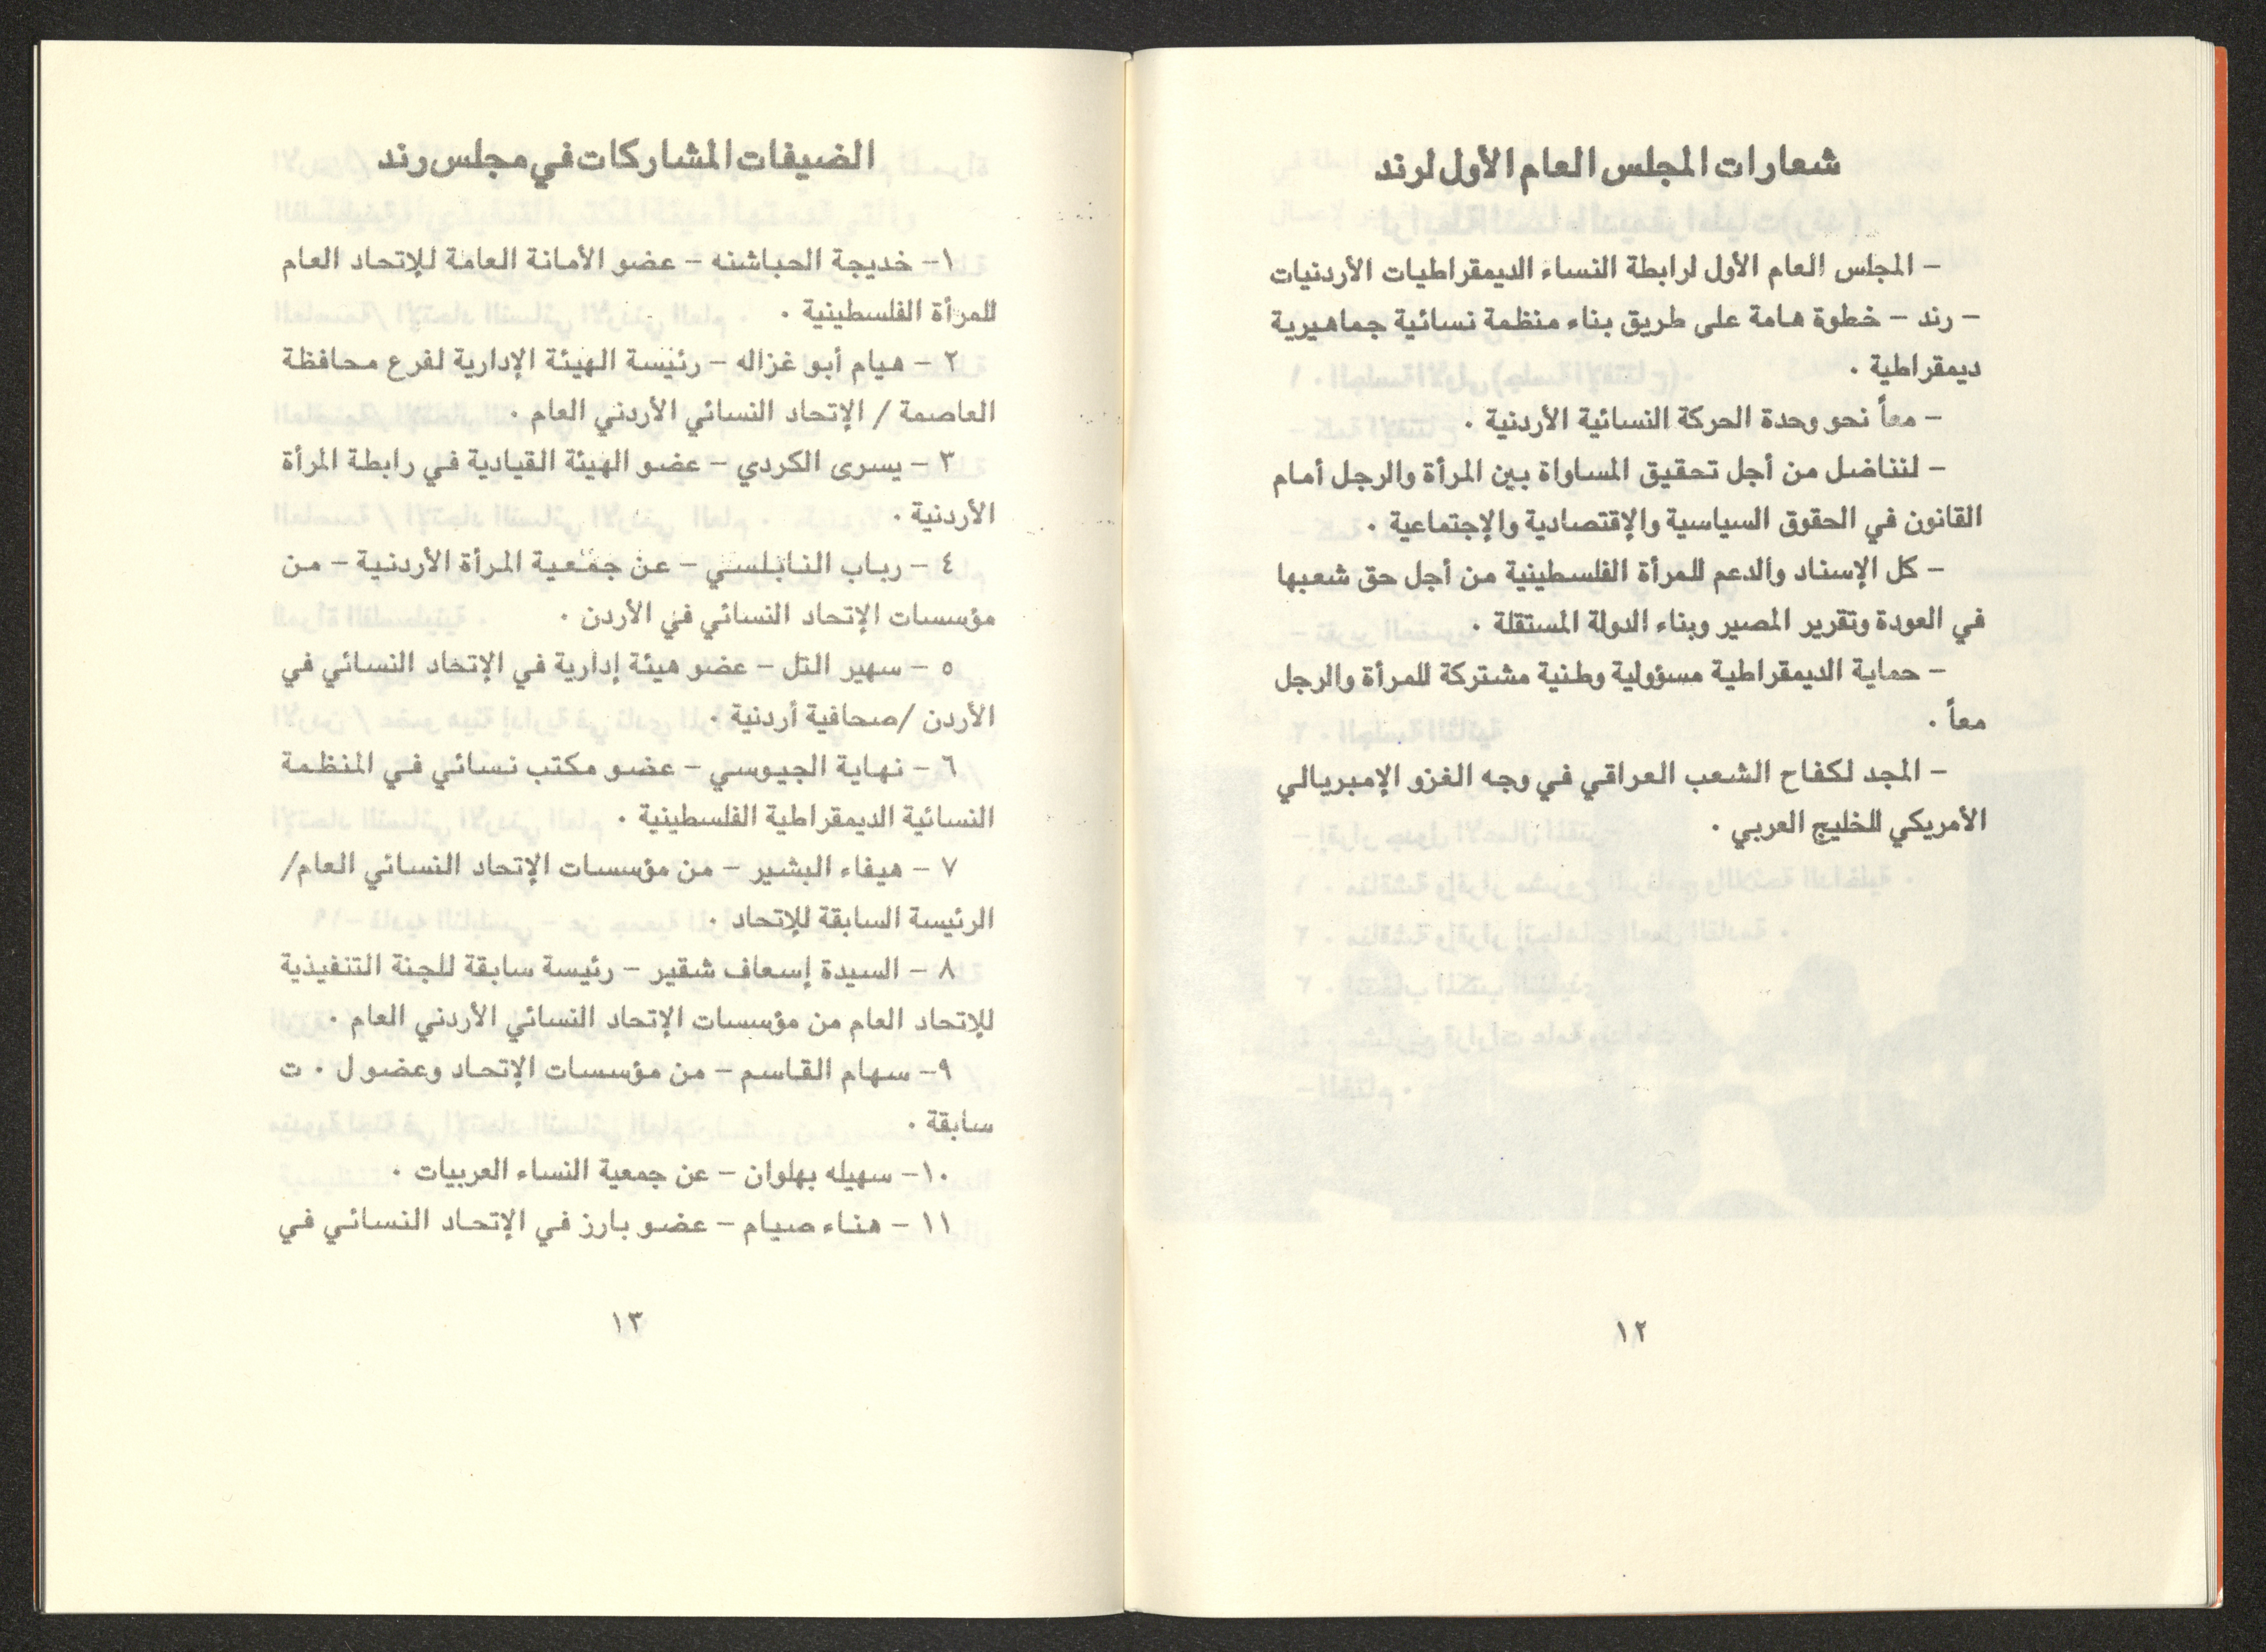 شعارات المجلس العام الأول لرند
– المجلس العام الأول لرابطة النساء الديمقراطيات الأردنيات
– رند – خطوة هامة على طريق بناء منظمة نسائية جماهيرية
ديمقراطية ٠
– معاً نحو وحدة الحركة النسائية الأردنية ٠
– لنناضل من أجل تحقيق المساواة بين المرأة والرجل أمام
القانون في الحقوق السياسية والإقتصادية والإجتماعية ٠
– كل الإسناد والدعم للمرأة الفلسطينية من أجل حق شعبها
في العودة وتقرير المصير وبناء الدولة المستقلة ٠
– حماية الديمقراطية مسؤولية وطنية مشتركة للمرأة والرجل
معاً ٠
– المجد لكفاح الشعب العراقي في وجه الغزو الإمبريالي
الأمريكي للخليج العربي ٠
١٢
الضيفات المشاركات في مجلس رند
١– خديجة الحباشنه – عضو الأمانة العامة للإتحاد العام
للمرأة الفلسطينية ٠
٢ – هيام أبو غزاله – رئيسة الهيئة الإدارية لفرع محافظة
العاصمة / الإتحاد النسائي الأردني العام ٠
٣ – يسرى الكردي – عضو الهيئة القيادية في رابطة المرأة
الأردنية ٠
٤ – رباب النابلسي – عن جمعية المرأة الأردنية – من
مؤسسات الإتحاد النسائي في الأردن ٠
٥ – سهير التل – عضو هيئة إدارية في الإتحاد النسائي في
الأردن /صحافية أردنية ٠
٦ – نهاية الجيوسي – عضو مكتب نسائي في المنظمة
النسائية الديمقراطية الفلسطينية ٠
٧ – هيفاء البشير – من مؤسسات الإتحاد النسائي العام/
الرئيسة السابقة للإتحاد ٠
٨ – السيدة إسعاف شقير – رئيسة سابقة للجنة التنفيذية
للإتحاد العام من مؤسسات الإتحاد النسائي الأردني العام ٠
٩– سهام القاسم – من مؤسسات الإتحاد وعضو ل ٠ ت
سابقة ٠
١٠– سهيله بهلوان – عن جمعية النساء العربيات ٠
١١ – هناء صيام – عضو بارز في الإتحاد النسائي في
١٣